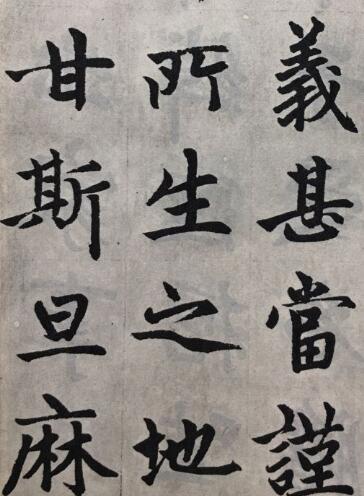 義甚當謹
所生之地
甘斯旦麻